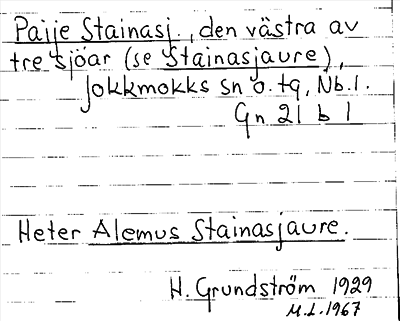 Paije Stainasj., den västra av
tre sjöar (se Stainasjaure),
Jokkmokks sn o. tg, Nb. l.
Gn 21 b 1
Heter Alemus Stainasjaure.
H. Grundström 1929
M.L. 1967